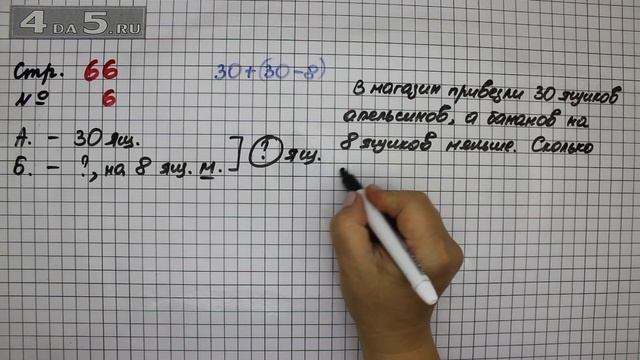 4DA5.RU
Стр. 66
№ 6
30+(30-8)
А. - 30 ящ.
Б. - ?, на 8 ящ. м.
? ящ.
В магазин привезли 30 ящиков
апельсинов, а бананов на
8 ящиков меньше. Сколько